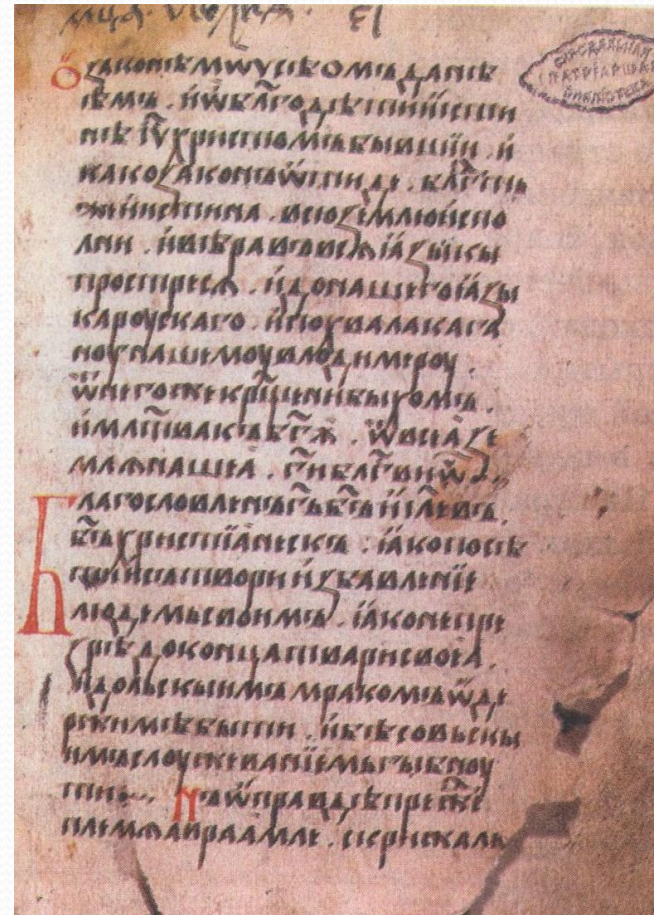 Ѻ законѣ мѡѵсѣѡмъ данѣ
ѣмъ. и ѡ блг҃одѣти и истин
нѣ іс҃ъ христомъ бывшїи. и
како законъ ѿиде. блг҃ть
же и истина. всю землю испо
лни. и вѣра въ всѧ ꙗзыкы
простресѧ. и до нашего ꙗзы
ка роускаго. и похвала кага
ноу нашемоу влодимероу.
ѿ него же крщ҃ени быхомъ.
и мл҃тва къ бг҃ѫ. ѿ всеа зе
млѧ нашеа. гⷭи блгⷭви ѡ҃ч
Благословленъ гь҃ бъ҃ иїл҃въ.
бъ҃ христїанескъ. ꙗко посѣ
ти и сътвори избавленїе
людемь своимъ. ꙗко не пре
зрѣ до конца твари своеа.
идольскыимъ мракомъ ѡдр
ьжимѣ быти. и бѣсовьскы
имъ слоужеванїемь гыбноу
ти. Нъ ѡправдѣ прежⷣе
племѧ авраамле. скрижаль
СИНОДАЛЬНАЯ
(ПАТРІАРШАЯ)
БИБЛІОТЕКА